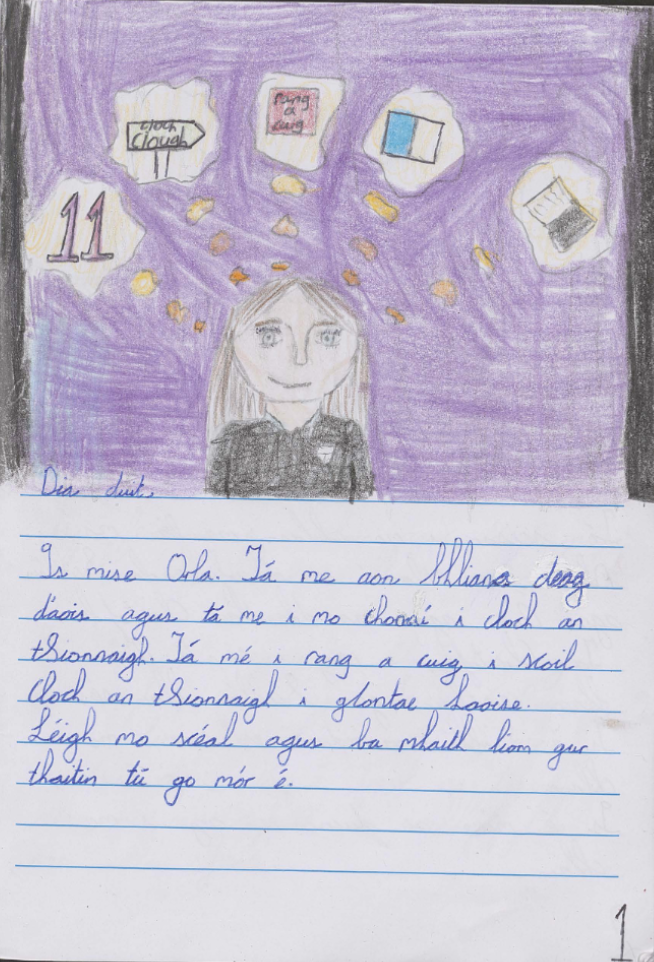 cloch
clough
rang
a
cuig
11
Dia duit.
Is mise Orla. Tá me aon bhliana deag
d'aois agus tá me i mo chonaí i cloch an
tSionnaigh. Tá mé i rang a cuig i scoil
Cloch an tSionnaigh i gContae Laoise.
Léigh mo scéal agus ba mhaith liom gur
thaitin tú go mór é.
1